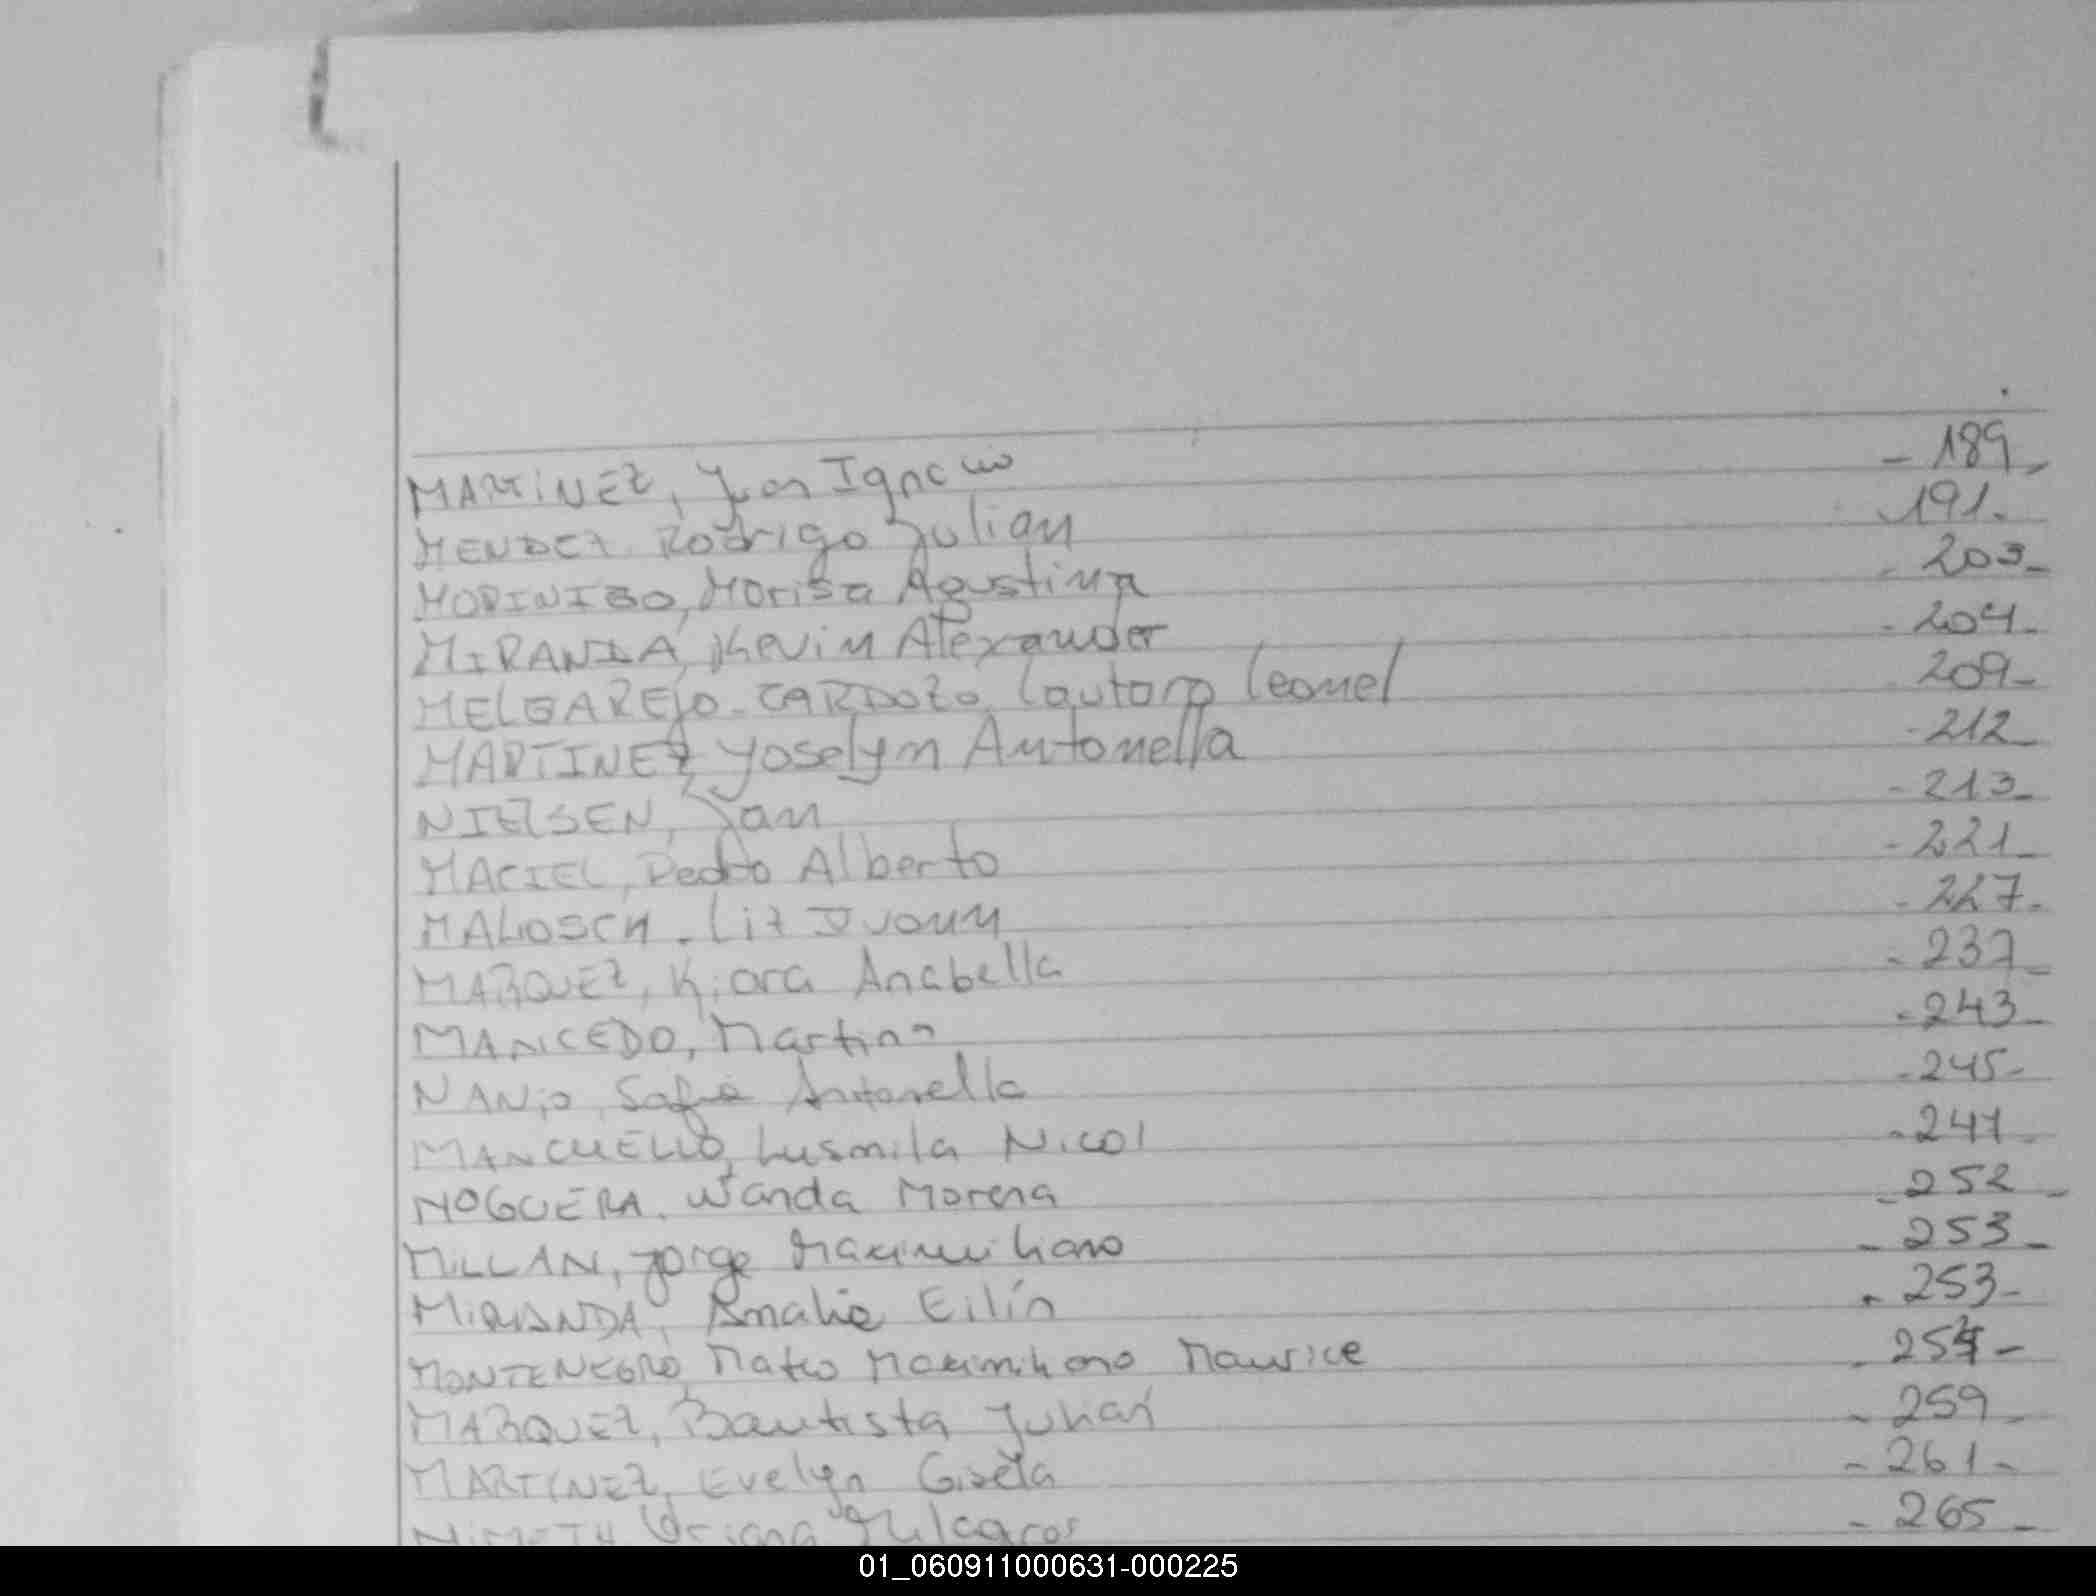 MARTINEZ, Juan Ignacio - 189 -
MENDEZ. Rodrigo Julian 191 -
Morisa Agustina - 203 -
MIRANDA, Kevin Alexander - 204 -
MELGAREJO - CARDOZO, Lautaro Leonel 209 -
MARTINEZ, Yoselym Antonella - 212 -
NIELSEN, Jan - 213 -
MACIEL, Pedro Alberto - 221 -
- 227 -
MARQUEZ, Kiara Anabella - 237 -
MANCEDO, Martina - 243 -
Antonella - 245 -
MANCUELLO, Lusmila Nicol
NOGUERA. Wanda Morena - 252 -
MILLAN, Jorge Maximiliano - 253 -
MIRANDA, Amalia Eilín - 253 -
MONTENEGRO, Mateo Maximiliano Maurice
MARQUEZ, Bautista Julian - 259 -
MARTINEZ, Evelyn Gisela - 261 -
Milagros - 265 -
01_060911000631-000225